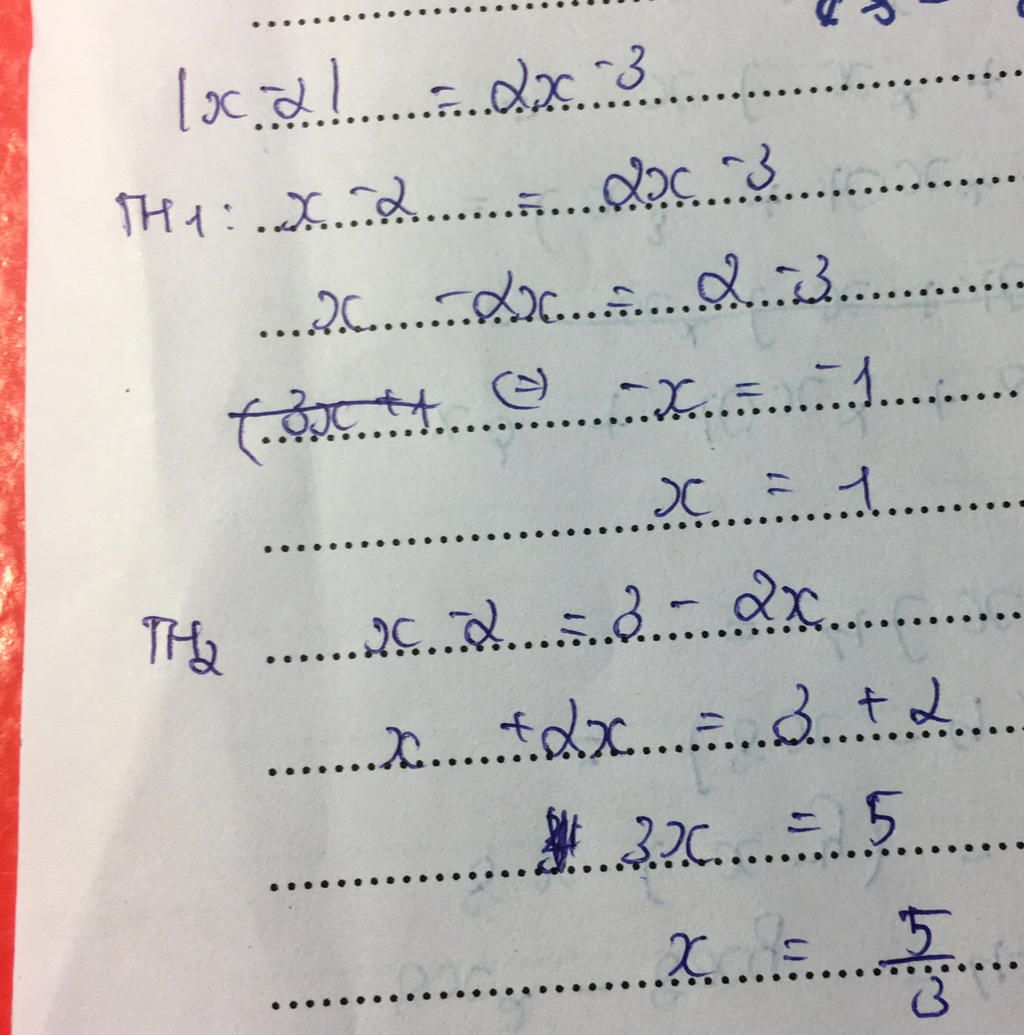 |x - 2| = 2x - 3
TH1: x - 2 = 2x - 3
x - 2x = 2 - 3
(=) -x = -1
x = 1
TH2 x - 2 = 3 - 2x
x + 2x = 3 + 2
3x = 5
x = 5/3